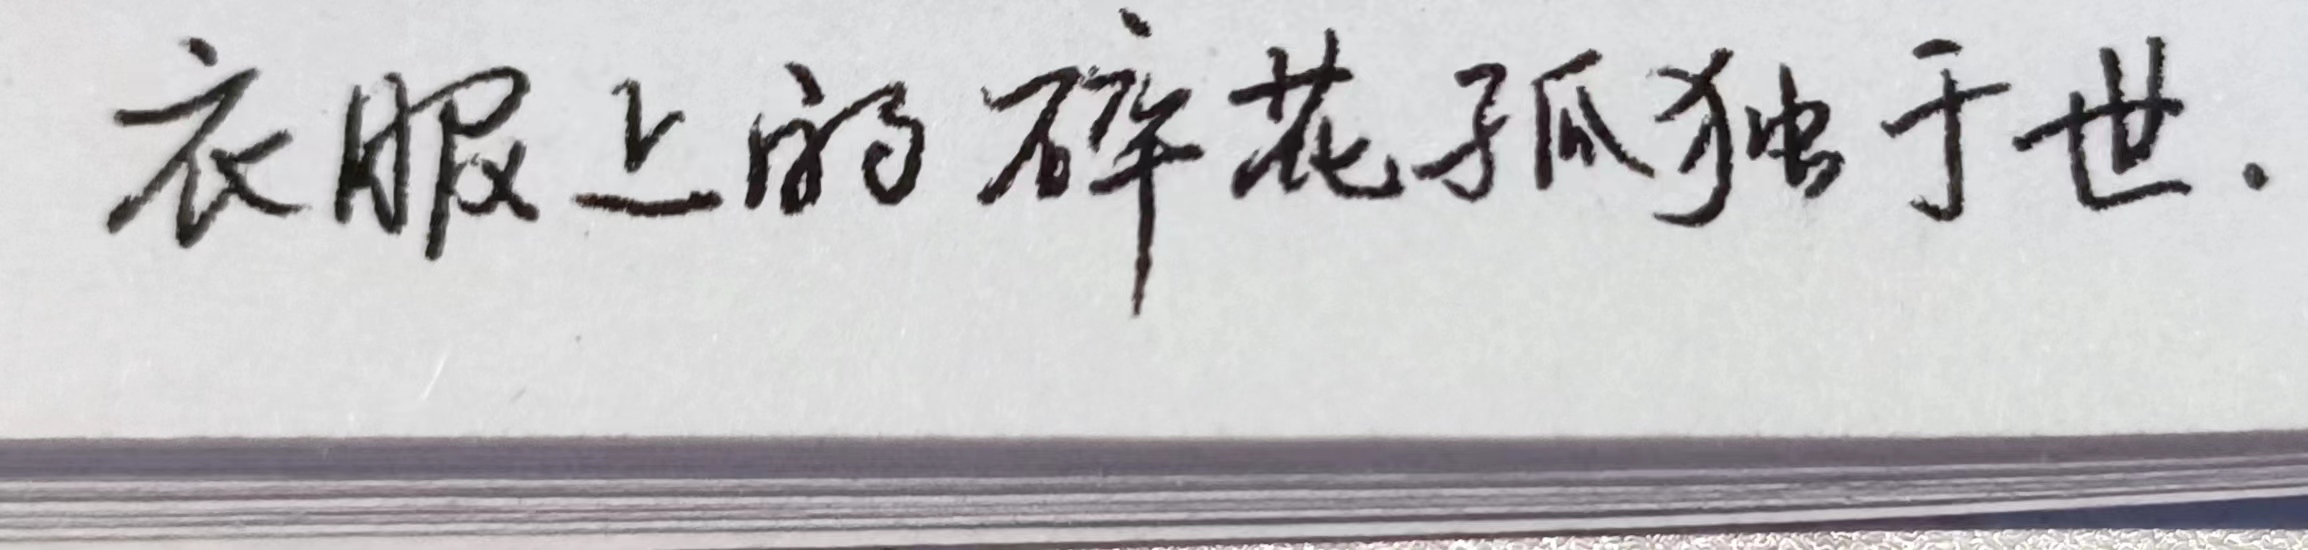 衣服上的碎花孤独于世.